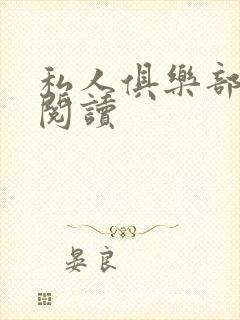 私人俱樂部
閱讀
晏良